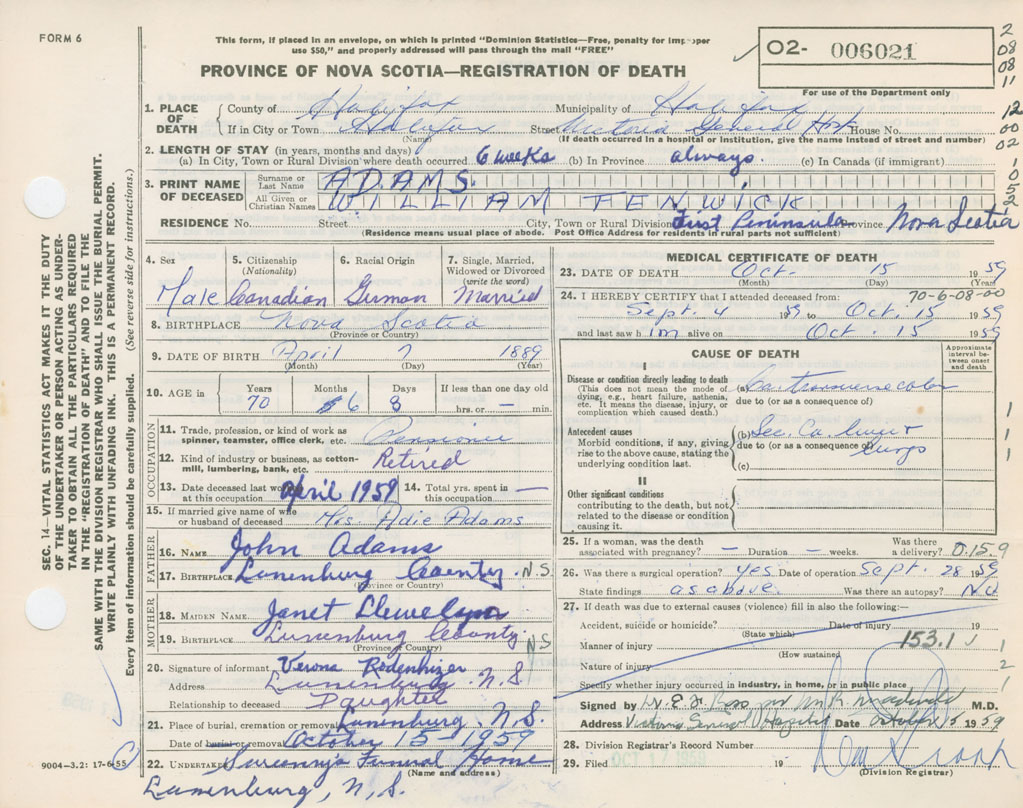 FORM 6
This form, if placed in an envelope, on which is printed "Dominion Statistics—Free, penalty for improper
use $50," and properly addressed will pass through the mail "FREE"
O2- 006021
For use of the Department only
2
08
08
11
12
00
02
1
0
5
2
PROVINCE OF NOVA SCOTIA—REGISTRATION OF DEATH
1. PLACE OF DEATH County of Halifax Municipality of Halifax
If in City or Town Halifax Street Victoria General Hosp House No.
(Name) (If death occurred in a hospital or institution, give the name instead of street and number)
2. LENGTH OF STAY (in years, months and days)
(a) In City, Town or Rural Division where death occurred 6 weeks (b) In Province always. (c) In Canada (if immigrant)
3. PRINT NAME OF DECEASED Surname or Last Name ADAMS.
All Given or Christian Names WILLIAM FENWICK
RESIDENCE No. Street City, Town or Rural Division First Peninsula Province Nova Scotia
(Residence means usual place of abode. Post Office Address for residents in rural parts not sufficient)
SEC. 14—VITAL STATISTICS ACT MAKES IT THE DUTY
OF THE UNDERTAKER OR PERSON ACTING AS UNDER-
TAKER TO OBTAIN ALL THE PARTICULARS REQUIRED
IN THE "REGISTRATION OF DEATH" AND TO FILE THE
SAME WITH THE DIVISION REGISTRAR WHO SHALL ISSUE THE BURIAL PERMIT.
WRITE PLAINLY WITH UNFADING INK. THIS IS A PERMANENT RECORD.
Every item of information should be carefully supplied. (See reverse side for instructions.)
4. Sex Male
5. Citizenship (Nationality) Canadian
6. Racial Origin German
7. Single, Married, Widowed or Divorced (write the word) Married
8. BIRTHPLACE Nova Scotia
(Province or Country)
9. DATE OF BIRTH April 7 1889
(Month) (Day) (Year)
10. AGE in Years 70 Months 6 Days 8 If less than one day old hrs. or — min.
OCCUPATION
11. Trade, profession, or kind of work as spinner, teamster, office clerk, etc. Pensioner
12. Kind of industry or business, as cotton-mill, lumbering, bank, etc. Retired
13. Date deceased last worked at this occupation April 1959 14. Total yrs. spent in this occupation —
15. If married give name of wife or husband of deceased Mrs. Adie Adams
FATHER
16. NAME John Adams
17. BIRTHPLACE Lunenburg County, N.S.
(Province or Country)
MOTHER
18. MAIDEN NAME Janet Llewelyn
19. BIRTHPLACE Lunenburg County NS
(Province or Country)
20. Signature of informant Verona Rodenhizer
Address Lunenburg N.S.
Relationship to deceased Daughter
21. Place of burial, cremation or removal Lunenburg, N.S.
Date of burial or removal October 15-1959
22. UNDERTAKER Funeral Home
(Name and address)
Lunenburg, N.S.
9004-3.2: 17-6-55
MEDICAL CERTIFICATE OF DEATH
23. DATE OF DEATH Oct. 15 1959
(Month) (Day) (Year)
24. I HEREBY CERTIFY that I attended deceased from: 70-6-08-00
Sept. 4 1959 to Oct. 15 1959
and last saw him alive on Oct. 15 1959
CAUSE OF DEATH
Approximate interval between onset and death
I
Disease or condition directly leading to death
(This does not mean the mode of dying, e.g., heart failure, asthenia, etc. It means the disease, injury, or complication which caused death.)
(a) Ca. transverse colon
due to (or as a consequence of)
Antecedent causes
Morbid conditions, if any, giving rise to the above cause, stating the underlying condition last.
(b) Sec. Ca. liver &
due to (or as a consequence of) lungs
(c)
II
Other significant conditions
contributing to the death, but not related to the disease or condition causing it.
1
1
1
25. If a woman, was the death associated with pregnancy? — Duration — weeks. Was there a delivery? 0.159
26. Was there a surgical operation? yes. Date of operation Sept. 28 1959
State findings as above. Was there an autopsy? No
27. If death was due to external causes (violence) fill in also the following:—
Accident, suicide or homicide? Date of injury 19
(State which)
Manner of injury 153.1
(How sustained)
Nature of injury
Specify whether injury occurred in industry, in home, or in public place
1
2
1
Signed by M.D.
Address Victoria General Hospital Date October 15 1959
28. Division Registrar's Record Number
29. Filed OCT 17 1959 19
(Division Registrar)